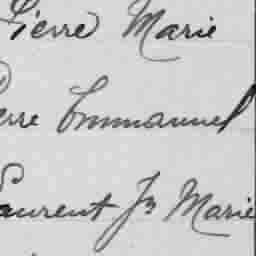 Pierre Marie
erre Emmanuel
Laurent Jn Marie